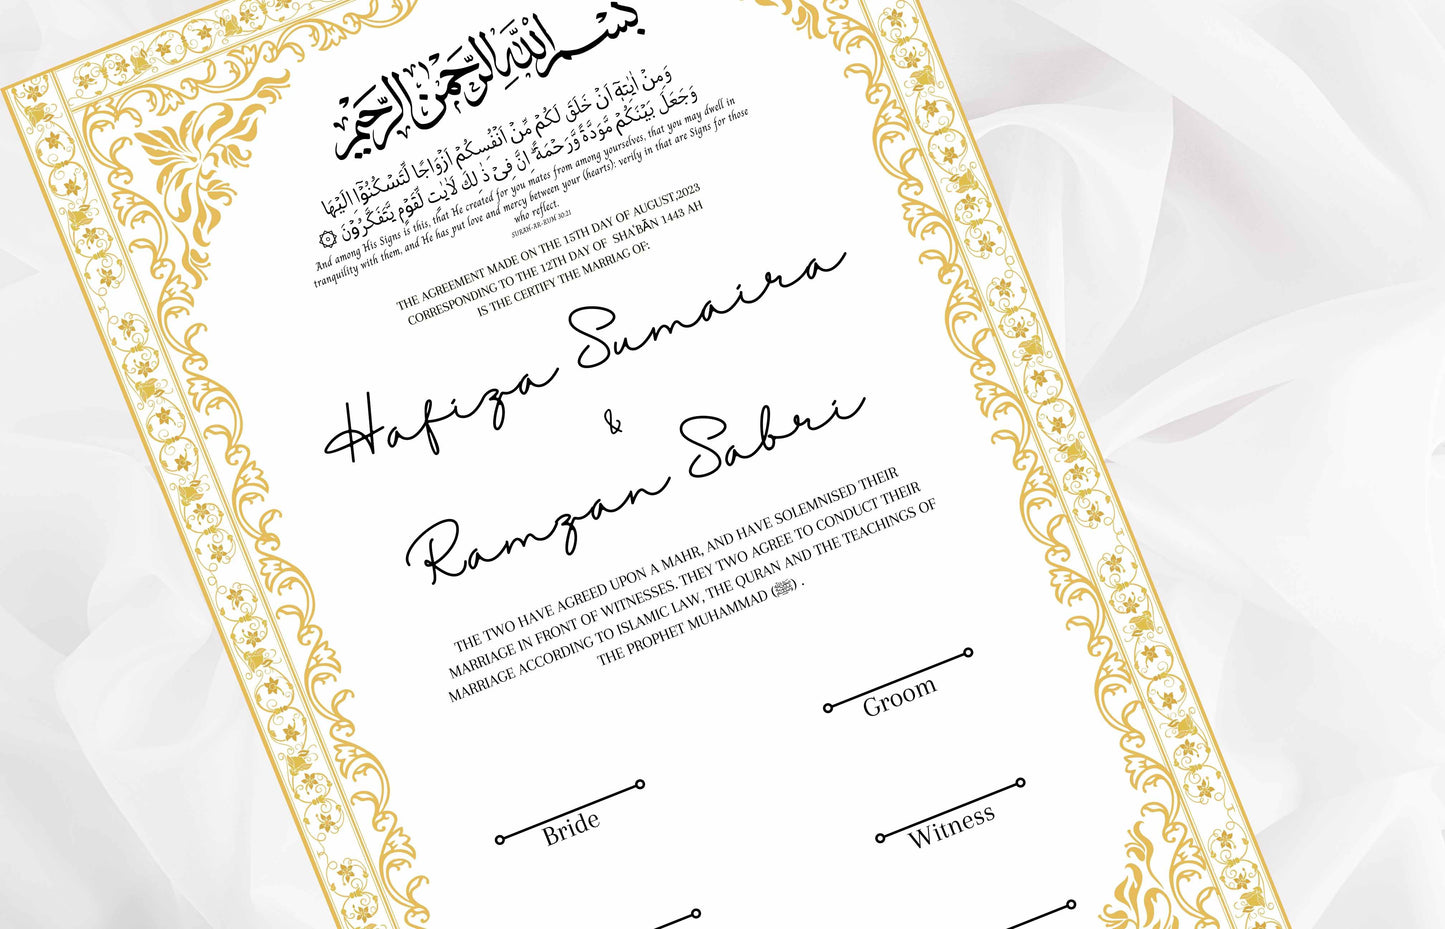 بِسْمِ اللهِ الرَّحْمٰنِ الرَّحِيْمِ
وَمِنْ اٰيٰتِهٖٓ اَنْ خَلَقَ لَكُمْ مِّنْ اَنْفُسِكُمْ اَزْوَاجًا لِّتَسْكُنُوْٓا اِلَيْهَا
وَجَعَلَ بَيْنَكُمْ مَّوَدَّةً وَّرَحْمَةً ۗ اِنَّ فِيْ ذٰ لِكَ لَاٰيٰتٍ لِّقَوْمٍ يَّتَفَكَّرُوْنَ
And among His Signs is this, that He created for you mates from among yourselves, that you may dwell in
tranquility with them, and He has put love and mercy between your (hearts): verily in that are Signs for those
who reflect.
SURAH-AR-RUM 30:21
THE AGREEMENT MADE ON THE 15TH DAY OF AUGUST,2023
CORRESPONDING TO THE 12TH DAY OF SHA'BĀN 1443 AH
IS THE CERTIFY THE MARRIAG OF:
Hafiza Sumaira
&
Ramzan Sabri
THE TWO HAVE AGREED UPON A MAHR, AND HAVE SOLEMNISED THEIR
MARRIAGE IN FRONT OF WITNESSES. THEY TWO AGREE TO CONDUCT THEIR
MARRIAGE ACCORDING TO ISLAMIC LAW, THE QURAN AND THE TEACHINGS OF
THE PROPHET MUHAMMAD (ﷺ) .
Groom
Bride
Witness